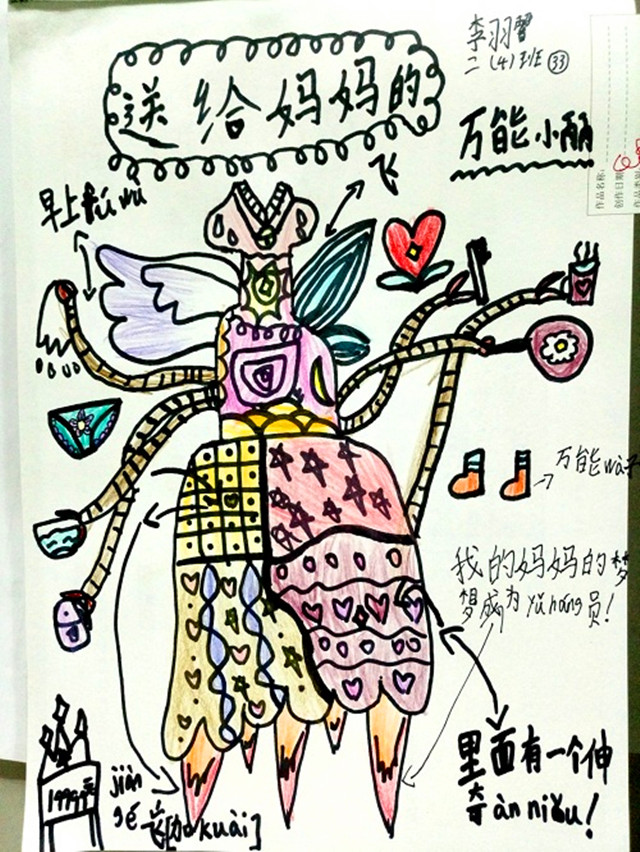 李羽習
二(4)班 33
送给妈妈的
万能小丽
飞
早上fú wù
作品名称:
创作日期
万能wà子
我的妈妈的梦
梦成为yǔ háng员!
里面有一个伸
奇àn niǔu!
1999元
jiàn
飞[加kuài]